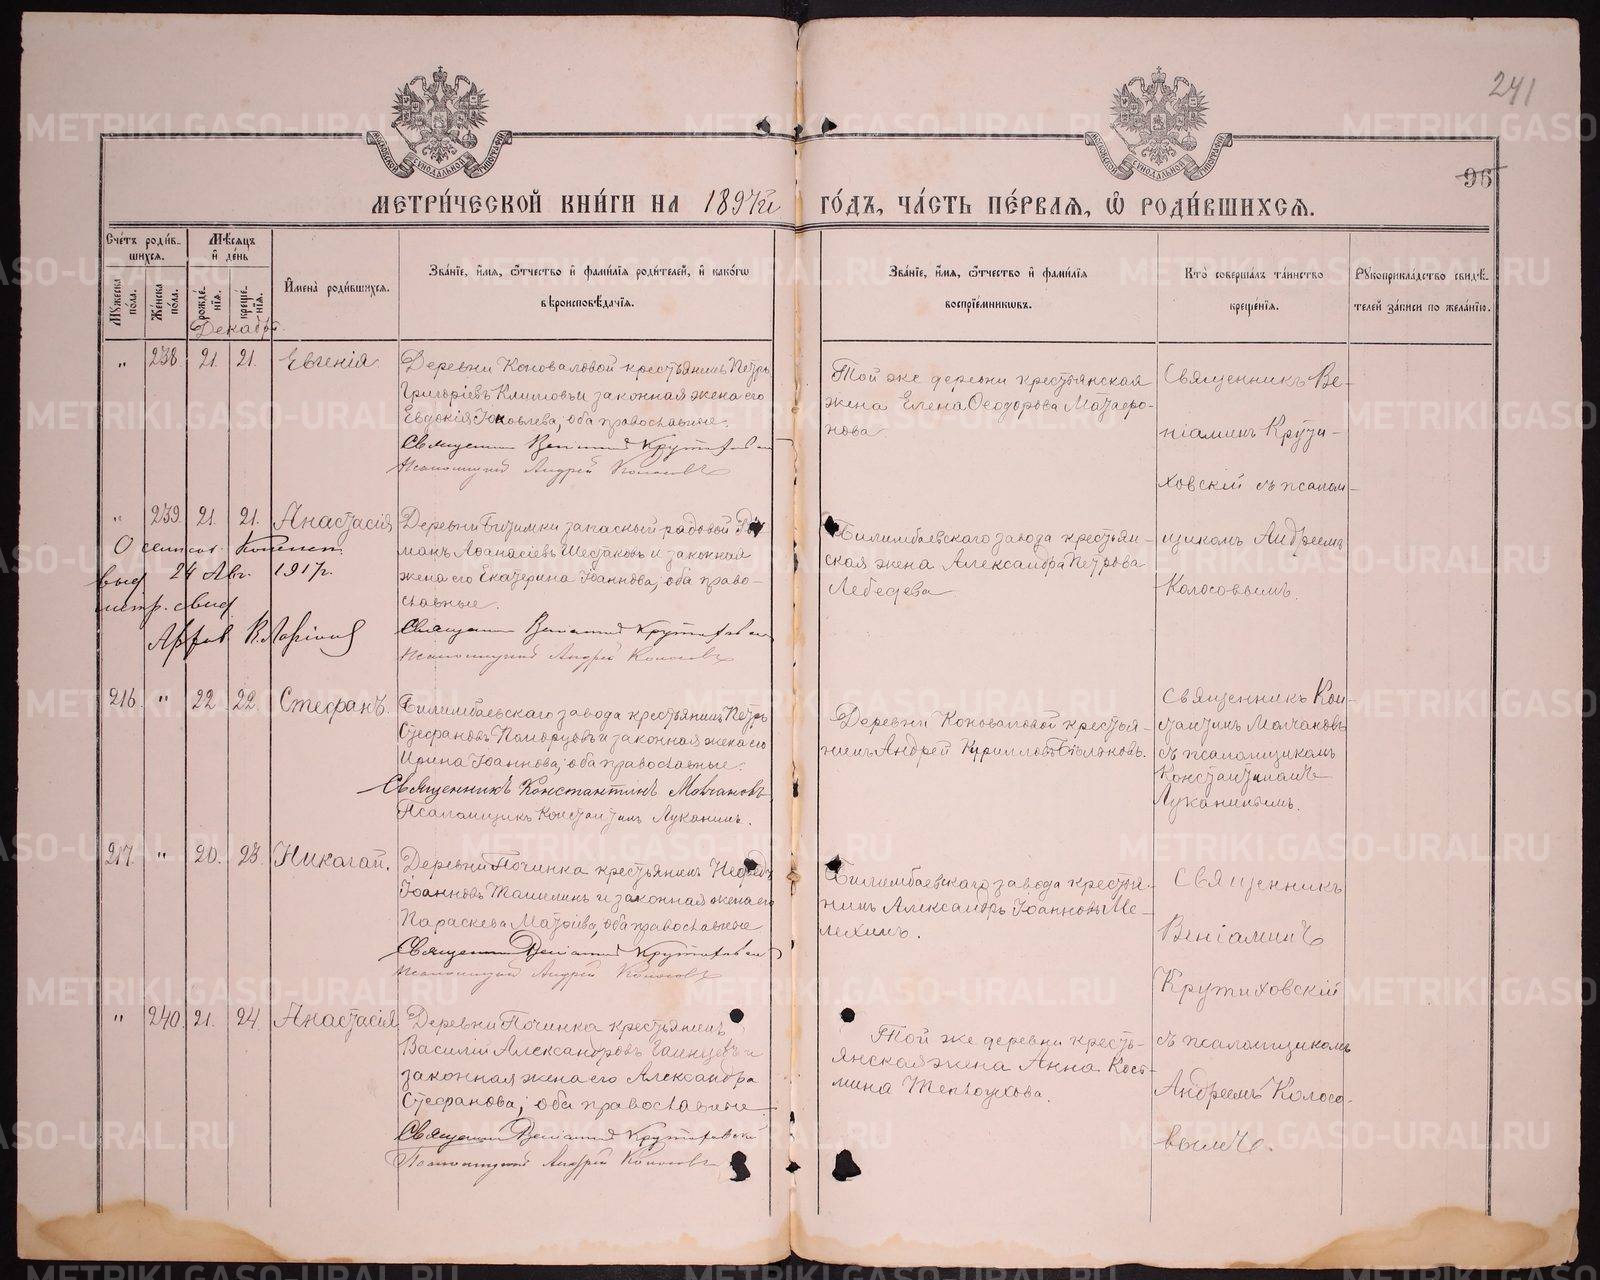 241
96
МЕТРИЧЕСКОЙ КНИГИ НА 1897й ГОДЪ, ЧАСТЬ ПЕРВАЯ, Ѡ РОДИВШИХСЯ.
Счетъ родив-
шихся.
Мужеска пола.
Женска пола.
Мѣсяцъ и день
рожде-
нія.
креще-
нія.
Имена родившихся.
Званіе, имя, отчество и фамилія родителей, и какого
вѣроисповѣданія.
Званіе, имя, отчество и фамилія
воспріемниковъ.
Кто совершалъ таинство
крещенія.
Рукоприкладство свидѣ-
телей записи по желанію.
Декабрь
" 238 21. 21. Евгенія.
Деревни Коноваловой крестьянинъ Петръ
Григоріевъ Климовъ и законная жена его
Евдокія Іаковлева, оба православные.
Священник Вениамин Крутиховский
Псаломщик Андрей Колосовъ
Той же деревни крестьянская
жена Елена Ѳеодорова Матафо-
нова
Священникъ Ве-
ніаминъ Крути-
ховскій съ псалом-
щикомъ Андреемъ
Колосовымъ.
" 239. 21. 21. Анастасія
Деревни Битимки запасный рядовой Ро
манъ Аѳанасіевъ Шестаковъ и законная
жена его Екатерина Іоаннова, оба право-
славные.
Священник Вениамин Крутиховский
Псаломщик Андрей Колосовъ
Билимбаевскаго завода крестьян-
ская жена Александра Петрова
Лебедева
выд 24 Авг. 1917г.
метр. свид
216. " 22 22. Стефанъ.
Билимбаевскаго завода крестьянинъ Петръ
Стефановъ Поморцовъ и законная жена его
Ирина Іоаннова, оба православные.
Священникъ Константинъ Молчановъ
Псаломщикъ Константинъ Луканинъ.
Деревни Коноваловой крестья-
нинъ Андрей Кирилловъ Бѣляковъ.
Священникъ Кон-
стантинъ Молчановъ
съ псаломщикомъ
Константиномъ
Луканинымъ.
217. " 20. 23. Николай.
Деревни Починка крестьянинъ
Іоанновъ и законная жена его
Параскева оба православные
Священник Вениамин Крутиховский
Псаломщик Андрей Колосовъ
Билимбаевскаго завода крестья-
нинъ Александръ Іоанновъ Ме-
лехинъ.
Священникъ
Веніаминъ
Крутиховскій
съ псаломщикомъ
Андреемъ Колосо-
вымъ.
" 240. 21. 24. Анастасія
Деревни Починка крестьянинъ
Василій Александровъ и
законная жена его Александра
Стефанова, оба православные
Священник Вениамин Крутиховский
Псаломщик Андрей Колосовъ
Той же деревни кресть-
янская жена Анна Кось-
мина Теплоухова.